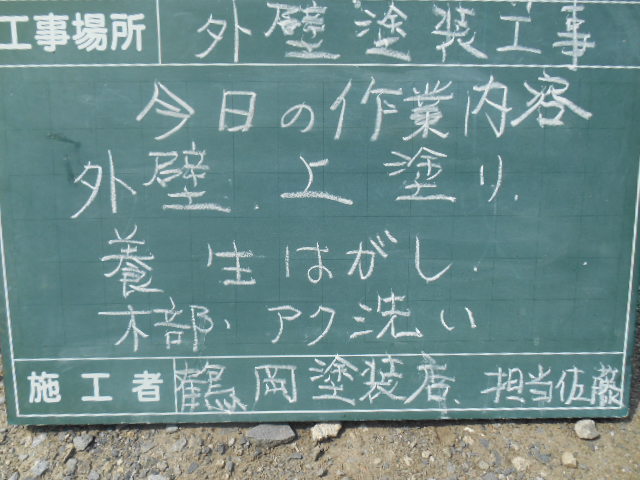 工事場所 外壁塗装工事
今日の作業内容
外壁.上塗り.
養生はがし.
木部.アク洗い
施工者 鶴岡塗装店.担当佐藤